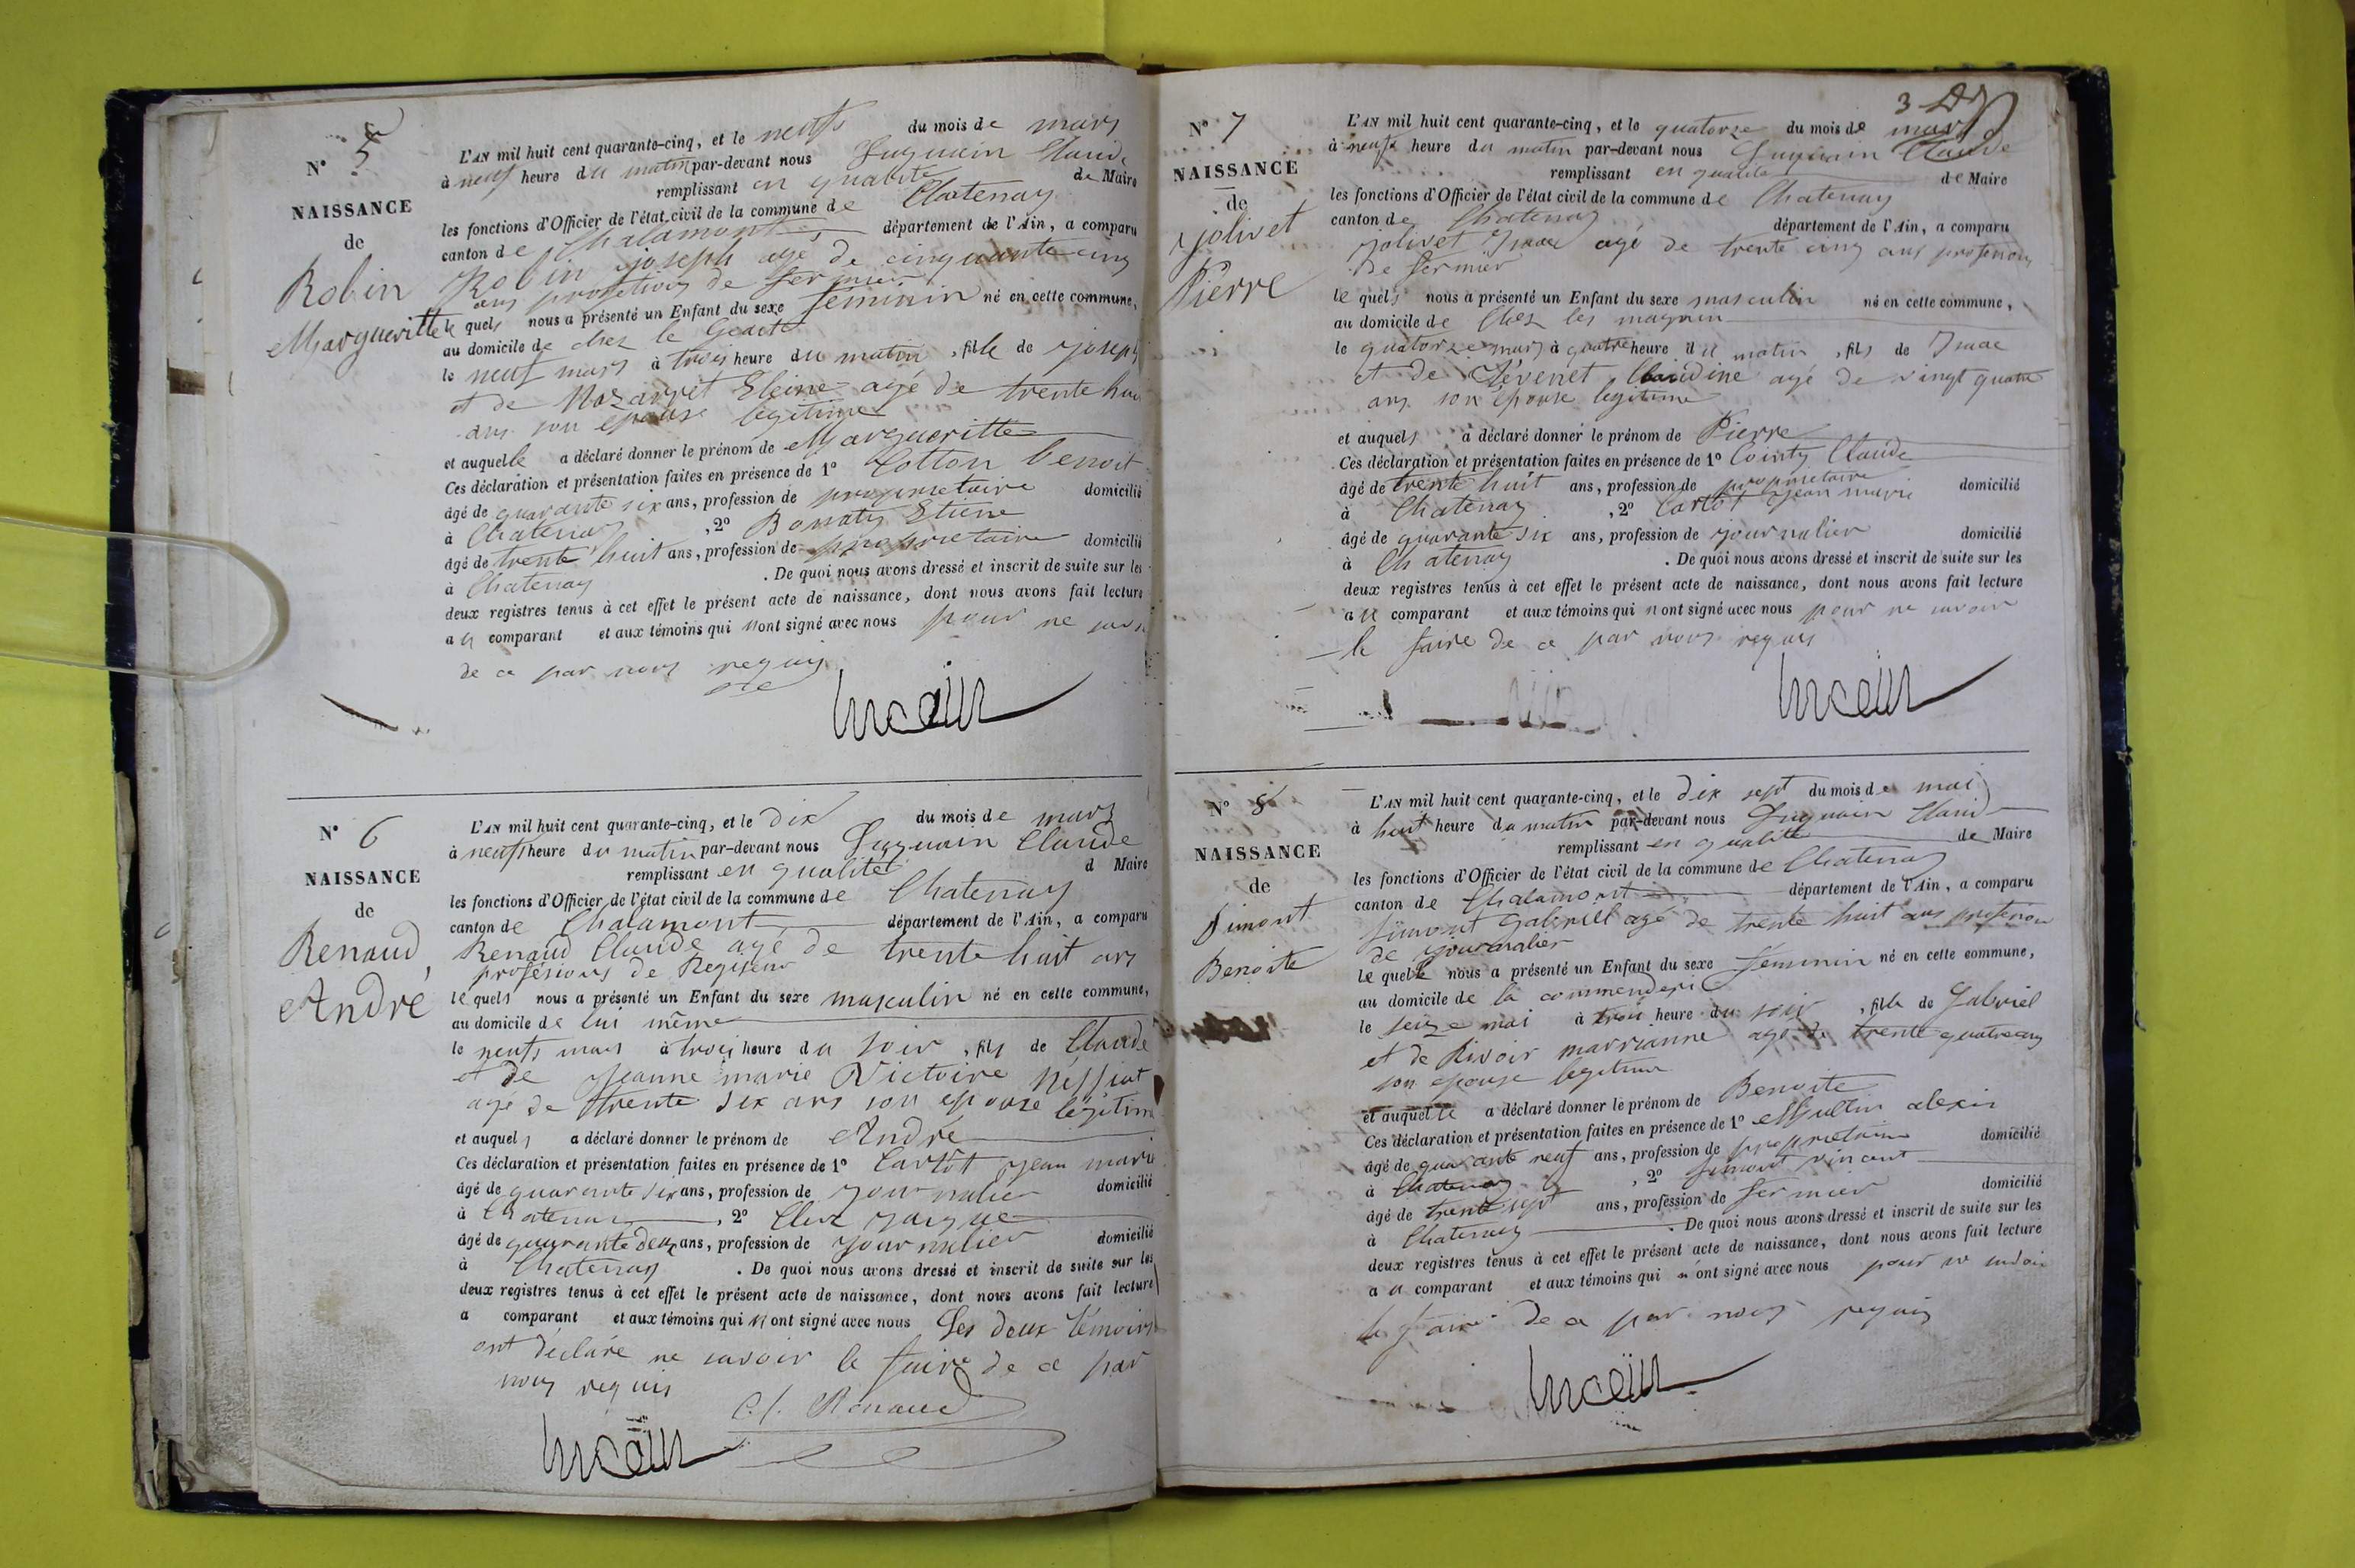 N° 5
NAISSANCE
de
Robin
Margueritte
L'AN mil huit cent quarante-cinq, et le neufs du mois de mars
à neuf heure du matin par-devant nous Claude
remplissant en qualité de Maire
les fonctions d'Officier de l'état civil de la commune de Chatenay
canton de Chalamont département de l'Ain, a comparu
Robin joseph agé de cinquante cinq
ans profetions de fermier
le quels nous a présenté un Enfant du sexe feminin né en cette commune,
au domicile de chez le
le neuf mars à trois heure du matin, fille de joseph
et de Eleine agé de trente huit
ans son epouse legitime
et auquelle a déclaré donner le prénom de Margueritte
Ces déclaration et présentation faites en présence de 1° Cotton benoit
âgé de quarante six ans, profession de proprietaire domicilié
à Chatenay, 2° Etiene
âgé de trente huit ans, profession de proprietaire domicilié
à Chatenay. De quoi nous avons dressé et inscrit de suite sur les
deux registres tenus à cet effet le présent acte de naissance, dont nous avons fait lecture
au comparant et aux témoins qui n ont signé avec nous pour ne
de ce par nous requis
N° 6
NAISSANCE
de
Renaud
André
L'AN mil huit cent quarante-cinq, et le dix du mois de mars
à neufs heure du matin par-devant nous Claude
remplissant en qualité d Maire
les fonctions d'Officier de l'état civil de la commune de Chatenay
canton de Chalamont département de l'Ain, a comparu
Renaud Claude agé de trente huit ans
profésions de Regiseur
le quels nous a présenté un Enfant du sexe masculin né en cette commune,
au domicile de lui même
le neufs mars à trois heure du soir, fils de Claude
et de jeanne marie Victoire
agé de trente six ans son epouse légitime
et auquels a déclaré donner le prénom de André
Ces déclaration et présentation faites en présence de 1° Carlot jean marie
âgé de quarante six ans, profession de journalier domicilié
à Chatenay, 2°
âgé de quarante deux ans, profession de journalier domicilié
à Chatenay. De quoi nous avons dressé et inscrit de suite sur les
deux registres tenus à cet effet le présent acte de naissance, dont nous avons fait lecture
a comparant et aux témoins qui n ont signé avec nous Les deux témoins
ont déclaré ne savoir le faire de ce par
nous requis
C. Renaud
3
N° 7
NAISSANCE
de
jolivet
Pierre
L'AN mil huit cent quarante-cinq, et le quatorze du mois de mars
à neufs heure du matin par-devant nous Claude
remplissant en qualité de Maire
les fonctions d'Officier de l'état civil de la commune de Chatenay
canton de Chatenay département de l'Ain, a comparu
jolivet agé de trente cinq ans profesions
de fermier
le quels nous a présenté un Enfant du sexe masculin né en cette commune,
au domicile de Chez les
le quatorze mars à quatre heure du matin, fils de
et de Claudine agé de vingt quatre
ans son épouse legitime
et auquels a déclaré donner le prénom de Pierre
Ces déclaration et présentation faites en présence de 1° Cointy Claude
âgé de trente huit ans, profession de proprietaire domicilié
à Chatenay, 2° Carlot jean marie
âgé de quarante six ans, profession de journalier domicilié
à Chatenay. De quoi nous avons dressé et inscrit de suite sur les
deux registres tenus à cet effet le présent acte de naissance, dont nous avons fait lecture
au comparant et aux témoins qui n ont signé avec nous pour ne savoir
le faire de ce par nous requis
N° 8
NAISSANCE
de
Simont
Benoite
L'AN mil huit cent quarante-cinq, et le dix sept du mois de mai
à huit heure du matin par-devant nous
remplissant en qualité de Maire
les fonctions d'Officier de l'état civil de la commune de Chatenay
canton de Chalamont département de l'Ain, a comparu
Simont Gabriel agé de trente huit ans profesion
de journalier
le quelle nous a présenté un Enfant du sexe féminin né en cette commune,
au domicile de la commenderi
le seize mai à trois heure du soir, fille de Gabriel
et de Rivoir marrianne agé de trente quatre ans
son epouse legitime
et auquelle a déclaré donner le prénom de Benoite
Ces déclaration et présentation faites en présence de 1° alexis
âgé de quarante neuf ans, profession de proprietaire domicilié
à Chatenay, 2° simont vincent
âgé de trente sept ans, profession de fermier domicilié
à Chatenay. De quoi nous avons dressé et inscrit de suite sur les
deux registres tenus à cet effet le présent acte de naissance, dont nous avons fait lecture
au comparant et aux témoins qui n'ont signé avec nous pour ne savoir
le faire de ce par nous requis